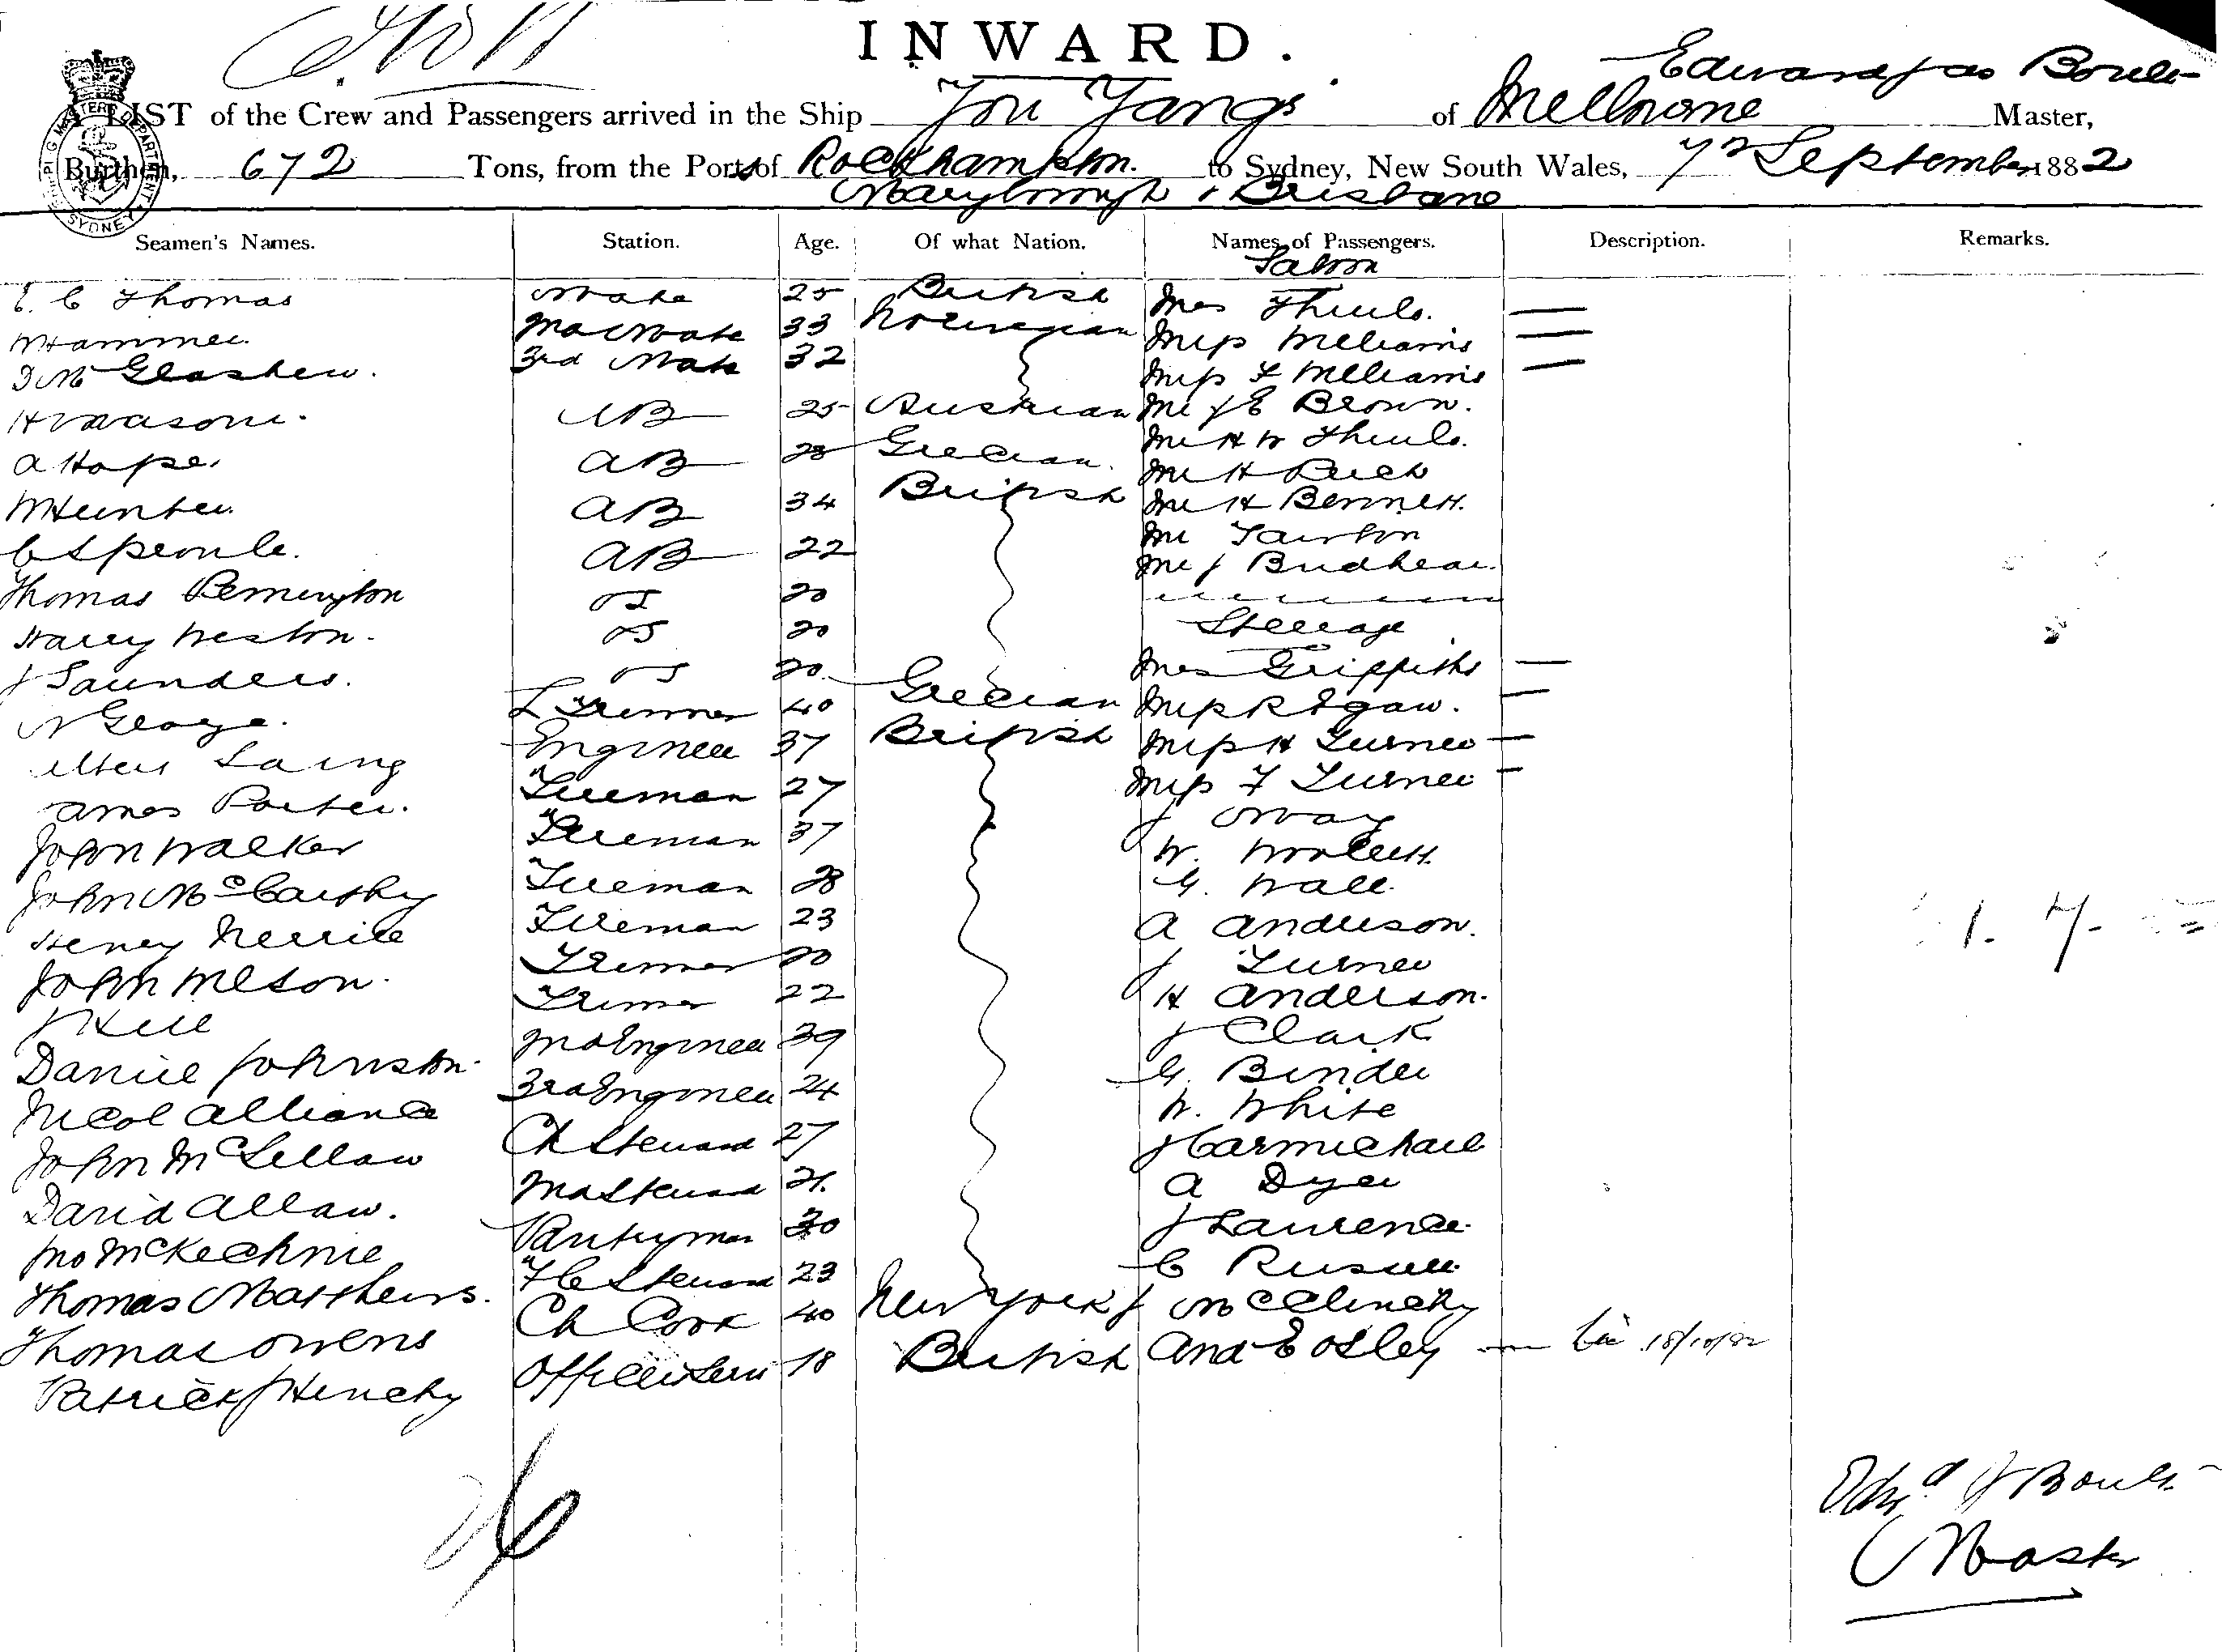 INWARD.
Edward Jas Boult
A LIST of the Crew and Passengers arrived in the Ship You Yangs of Melbourne Master,
Burthen, 672 Tons, from the Ports of Rockhampton. to Sydney, New South Wales, 7th September 1882
Maryborough & Brisbane
SHIPPING MASTERS DEPARTMENT SYDNEY
Seamen's Names. Station. Age. Of what Nation. Names of Passengers. Description. Remarks.
Saloon
E. C Thomas Mate 25 British Mrs Thiele. —
W Hammer. 2nd Mate 33 Norwegian Miss Williams —
D McGlashen. 3rd Mate 32 Miss F Williams —
H AB 25 Austrian Mr J E Brown.
A Hope. AB 28 Grecian. Mr H W Thiele.
Mr H
W Hunter. AB 34 British Mr H Bennett.
C Sproule. AB 22 Mr
Mr J
Thomas Pennington OS 20
Harry Weston. OS 20 Steerage
J Saunders. OS 20 Mrs Griffiths —
N George. L Trimmer 40 Grecian Miss R —
Laing Engineer 37 British Miss H Turner —
James Porter. Fireman 27 Miss F Turner —
John Walker Fireman 37 J May
W. Woollett.
John McCarthy Fireman 28 G. Wall.
Henry Merrile Fireman 23 A Anderson.
John Wilson. Trimmer 20 J Turner
J Hill Trimmer 22 H Anderson.
Daniel Johnston. 2nd Engineer 39 J Clark
Nicol Alliance 3rd Engineer 24 G. Binder
W. White
John McLellan Ch Steward 27 J Carmichael
David Allan. 2nd Steward 21. A Dyer
Jno McKechnie Pantryman 30 J Laurence.
Thomas Matthews. F C Steward 23 C Russell.
Thomas Owens Ch Cook 40 New York J McClinchy
Patrick J Henchy Officers Serv 18 British And E Osley — 18/10/82
26
Edwd J Boult
Master